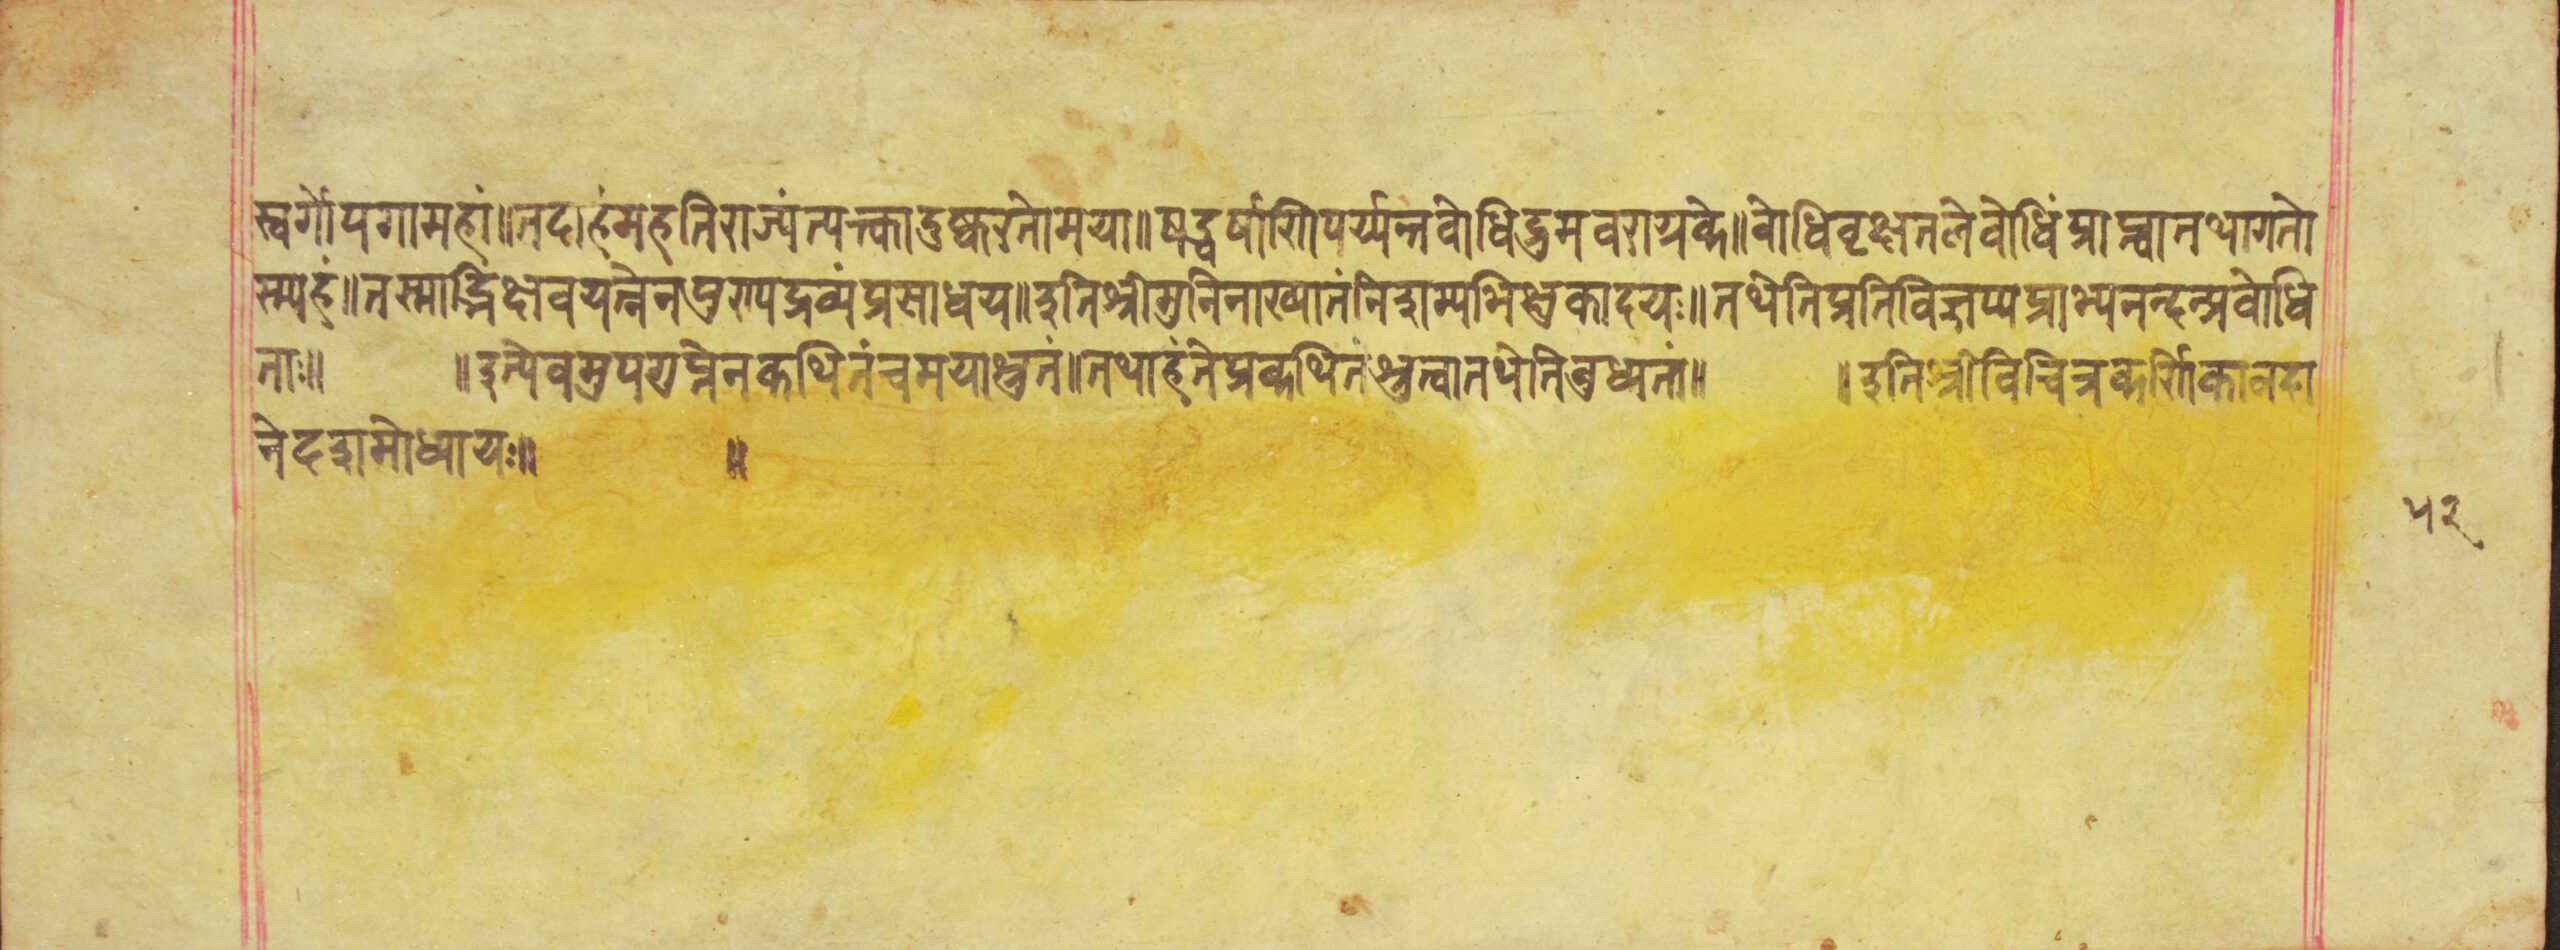 स्वर्गोपगामहां॥तदाहंमहतिराज्यंत्यक्त्कादुष्करतोमया॥षड्वर्षाणिपर्य्यन्तवोधिद्रुमवरायके॥वोधिवृक्षतलेवोधिंप्राप्त्वातथागतो
स्म्यहं॥तस्माद्भिक्षवयत्नेनपुण्यद्रव्यंप्रसाधय॥इतिश्रीमुनिनाख्यातंनिशम्यभिक्षुकादयः॥तथेतिप्रतिविज्ञप्यप्राभ्यनन्दन्प्रवोधि
ताः॥ ॥इत्येवमुपगुप्तेनकथितंचमयाश्रुतं॥तथाहंतेप्रकथितंश्रुत्वातथेतिबुध्यतां॥ ॥इतिश्रीविचित्रकर्णिकावदा
नेदशमोध्यायः॥ ॥
५२